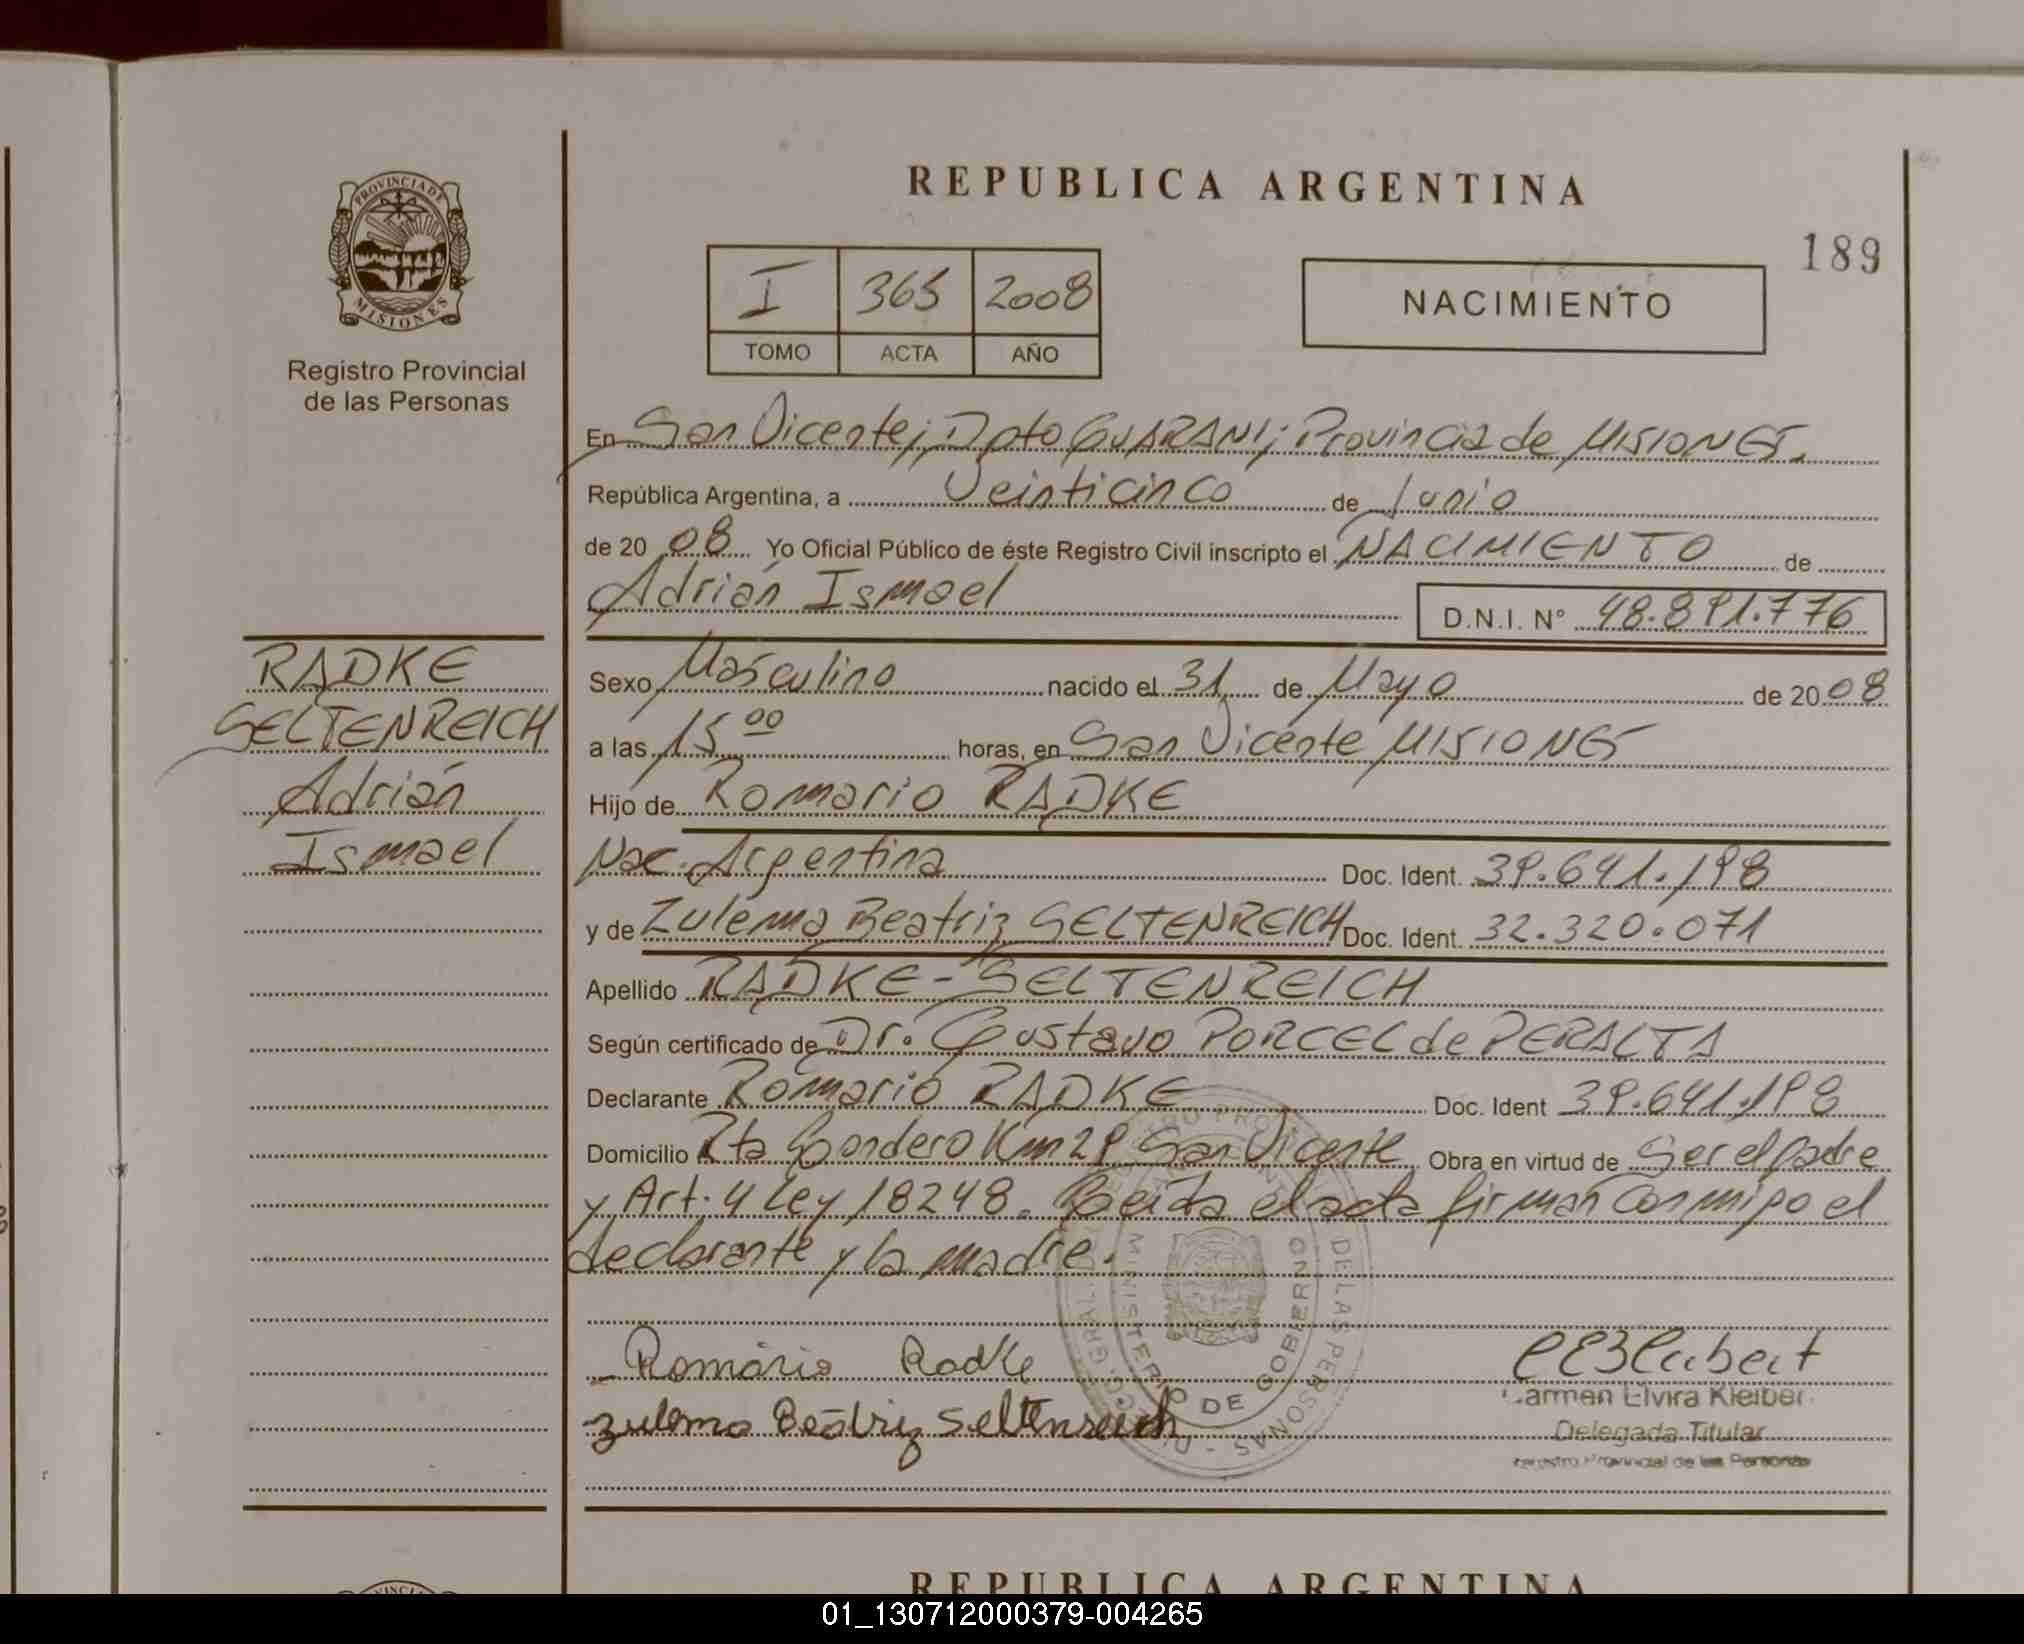 REPUBLICA ARGENTINA
189
PROVINCIA DE
MISIONES
Registro Provincial
de las Personas
I 365 2008
TOMO ACTA AÑO
NACIMIENTO
En San Vicente; Dpto GUARANI; Provincia de MISIONES.
República Argentina, a Veinticinco de Junio
de 20 08 Yo Oficial Público de éste Registro Civil inscripto el NACIMIENTO de
Adrián Ismael D.N.I. Nº 48.891.776
RADKE
SELTENREICH
Adrián
Ismael
Sexo Masculino nacido el 31 de Mayo de 20 08
a las 15 00 horas, en San Vicente MISIONES
Hijo de Romario RADKE
Nac. Argentina Doc. Ident. 39.641.198
y de Zulema Beatriz SELTENREICH Doc. Ident. 32.320.071
Apellido RADKE-SELTENREICH
Según certificado de Dr. Gustavo PORCEL de PERALTA
Declarante Romario RADKE Doc. Ident 39.641.198
Domicilio Rta Km 29 San Vicente Obra en virtud de Ser el padre
y Art. 4 Ley 18248. el acta firman conmigo el
declarante y la madre.
Romário Radke
Zulema Beatriz Seltenreich
MINISTERIO DE GOBIERNO
DE LAS PERSONAS
Carmen Elvira Kleiber
Delegada Titular
Registro Provincial de las Personas
REPUBLICA ARGENTINA
01_130712000379-004265